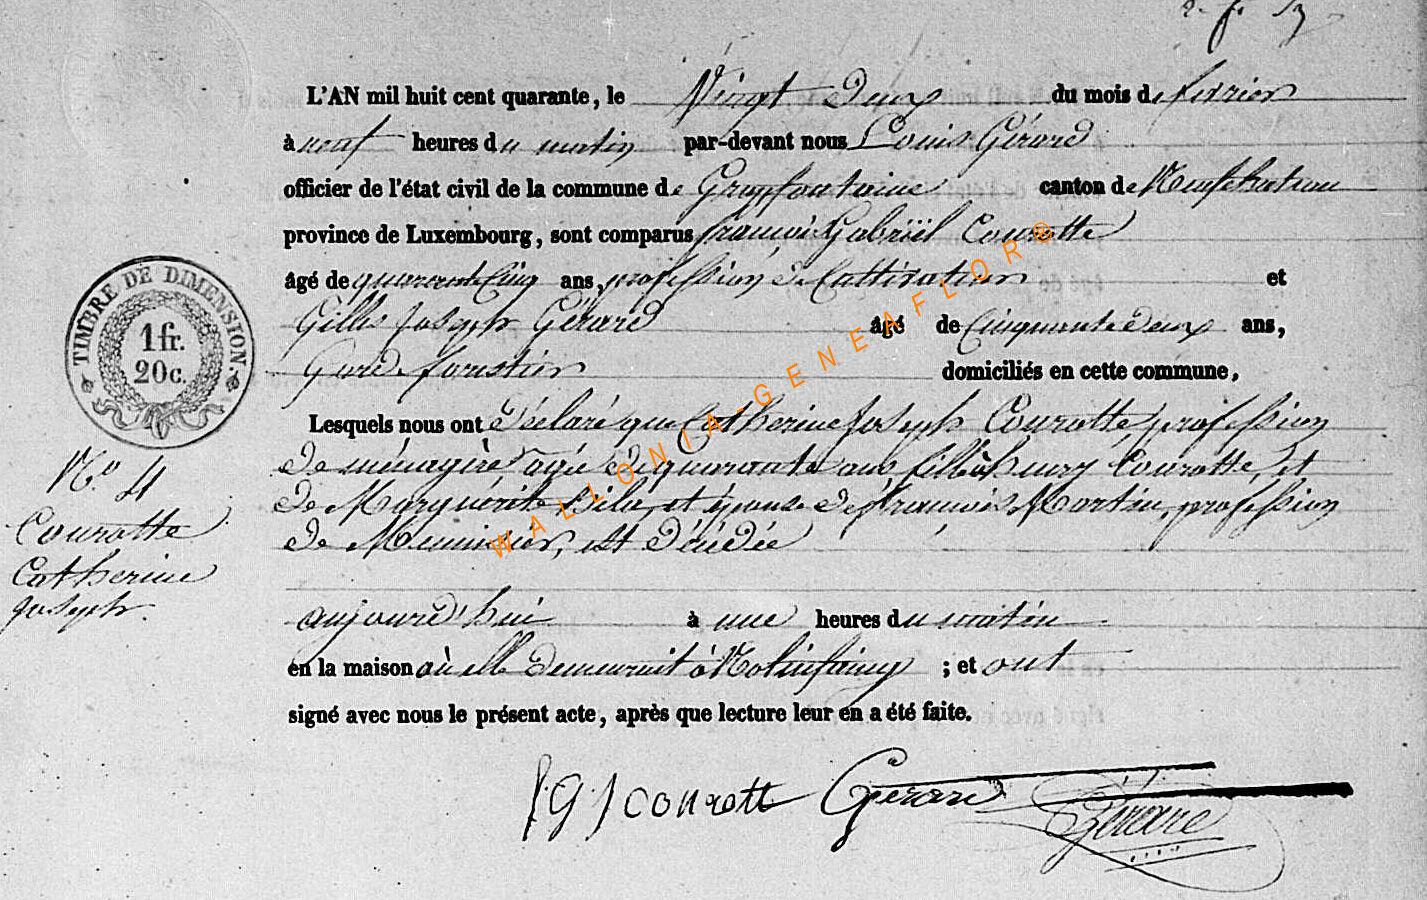 L'AN mil huit cent quarante, le Vingt Deux du mois de fevrier
à neuf heures du matin par-devant nous Louis Gérard
officier de l'état civil de la commune de Grapfontaine canton de Neufchateau
province de Luxembourg, sont comparus françois Gabriël Courotte
âgé de quarante Cinq ans, profession de Cultivateur et
Gilles Joseph Gérard âgé de Cinquante deux ans,
Garde forestier domiciliés en cette commune,
Lesquels nous ont Déclaré que Catherine Joseph Courotte profession
de ménagère agée de quarante ans fille de henry Courotte, et
de Marguérite et épouse de françois Martin, profession
de Meunier, est Décédée
aujourd'hui à une heures du matin
en la maison où elle demeurait à Molinfaing ; et ont
signé avec nous le présent acte, après que lecture leur en a été faite.
TIMBRE DE DIMENSION.
1 fr.
20 c.
N.o 4
Courotte
Catherine
Joseph.
WALLONIA-GENEAFLOR®
courott Gérard Gérard